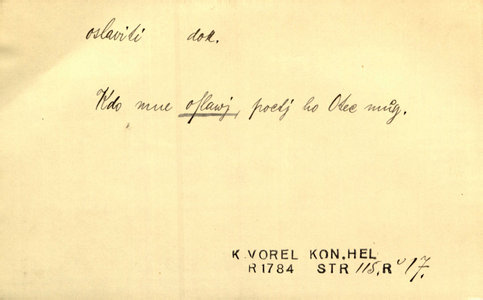 oslaviti dok.
Kdo mne oslawj, poctj ho Otec můg.
K.VOREL KON.HEL
R1784 STR 115, Ř 17.